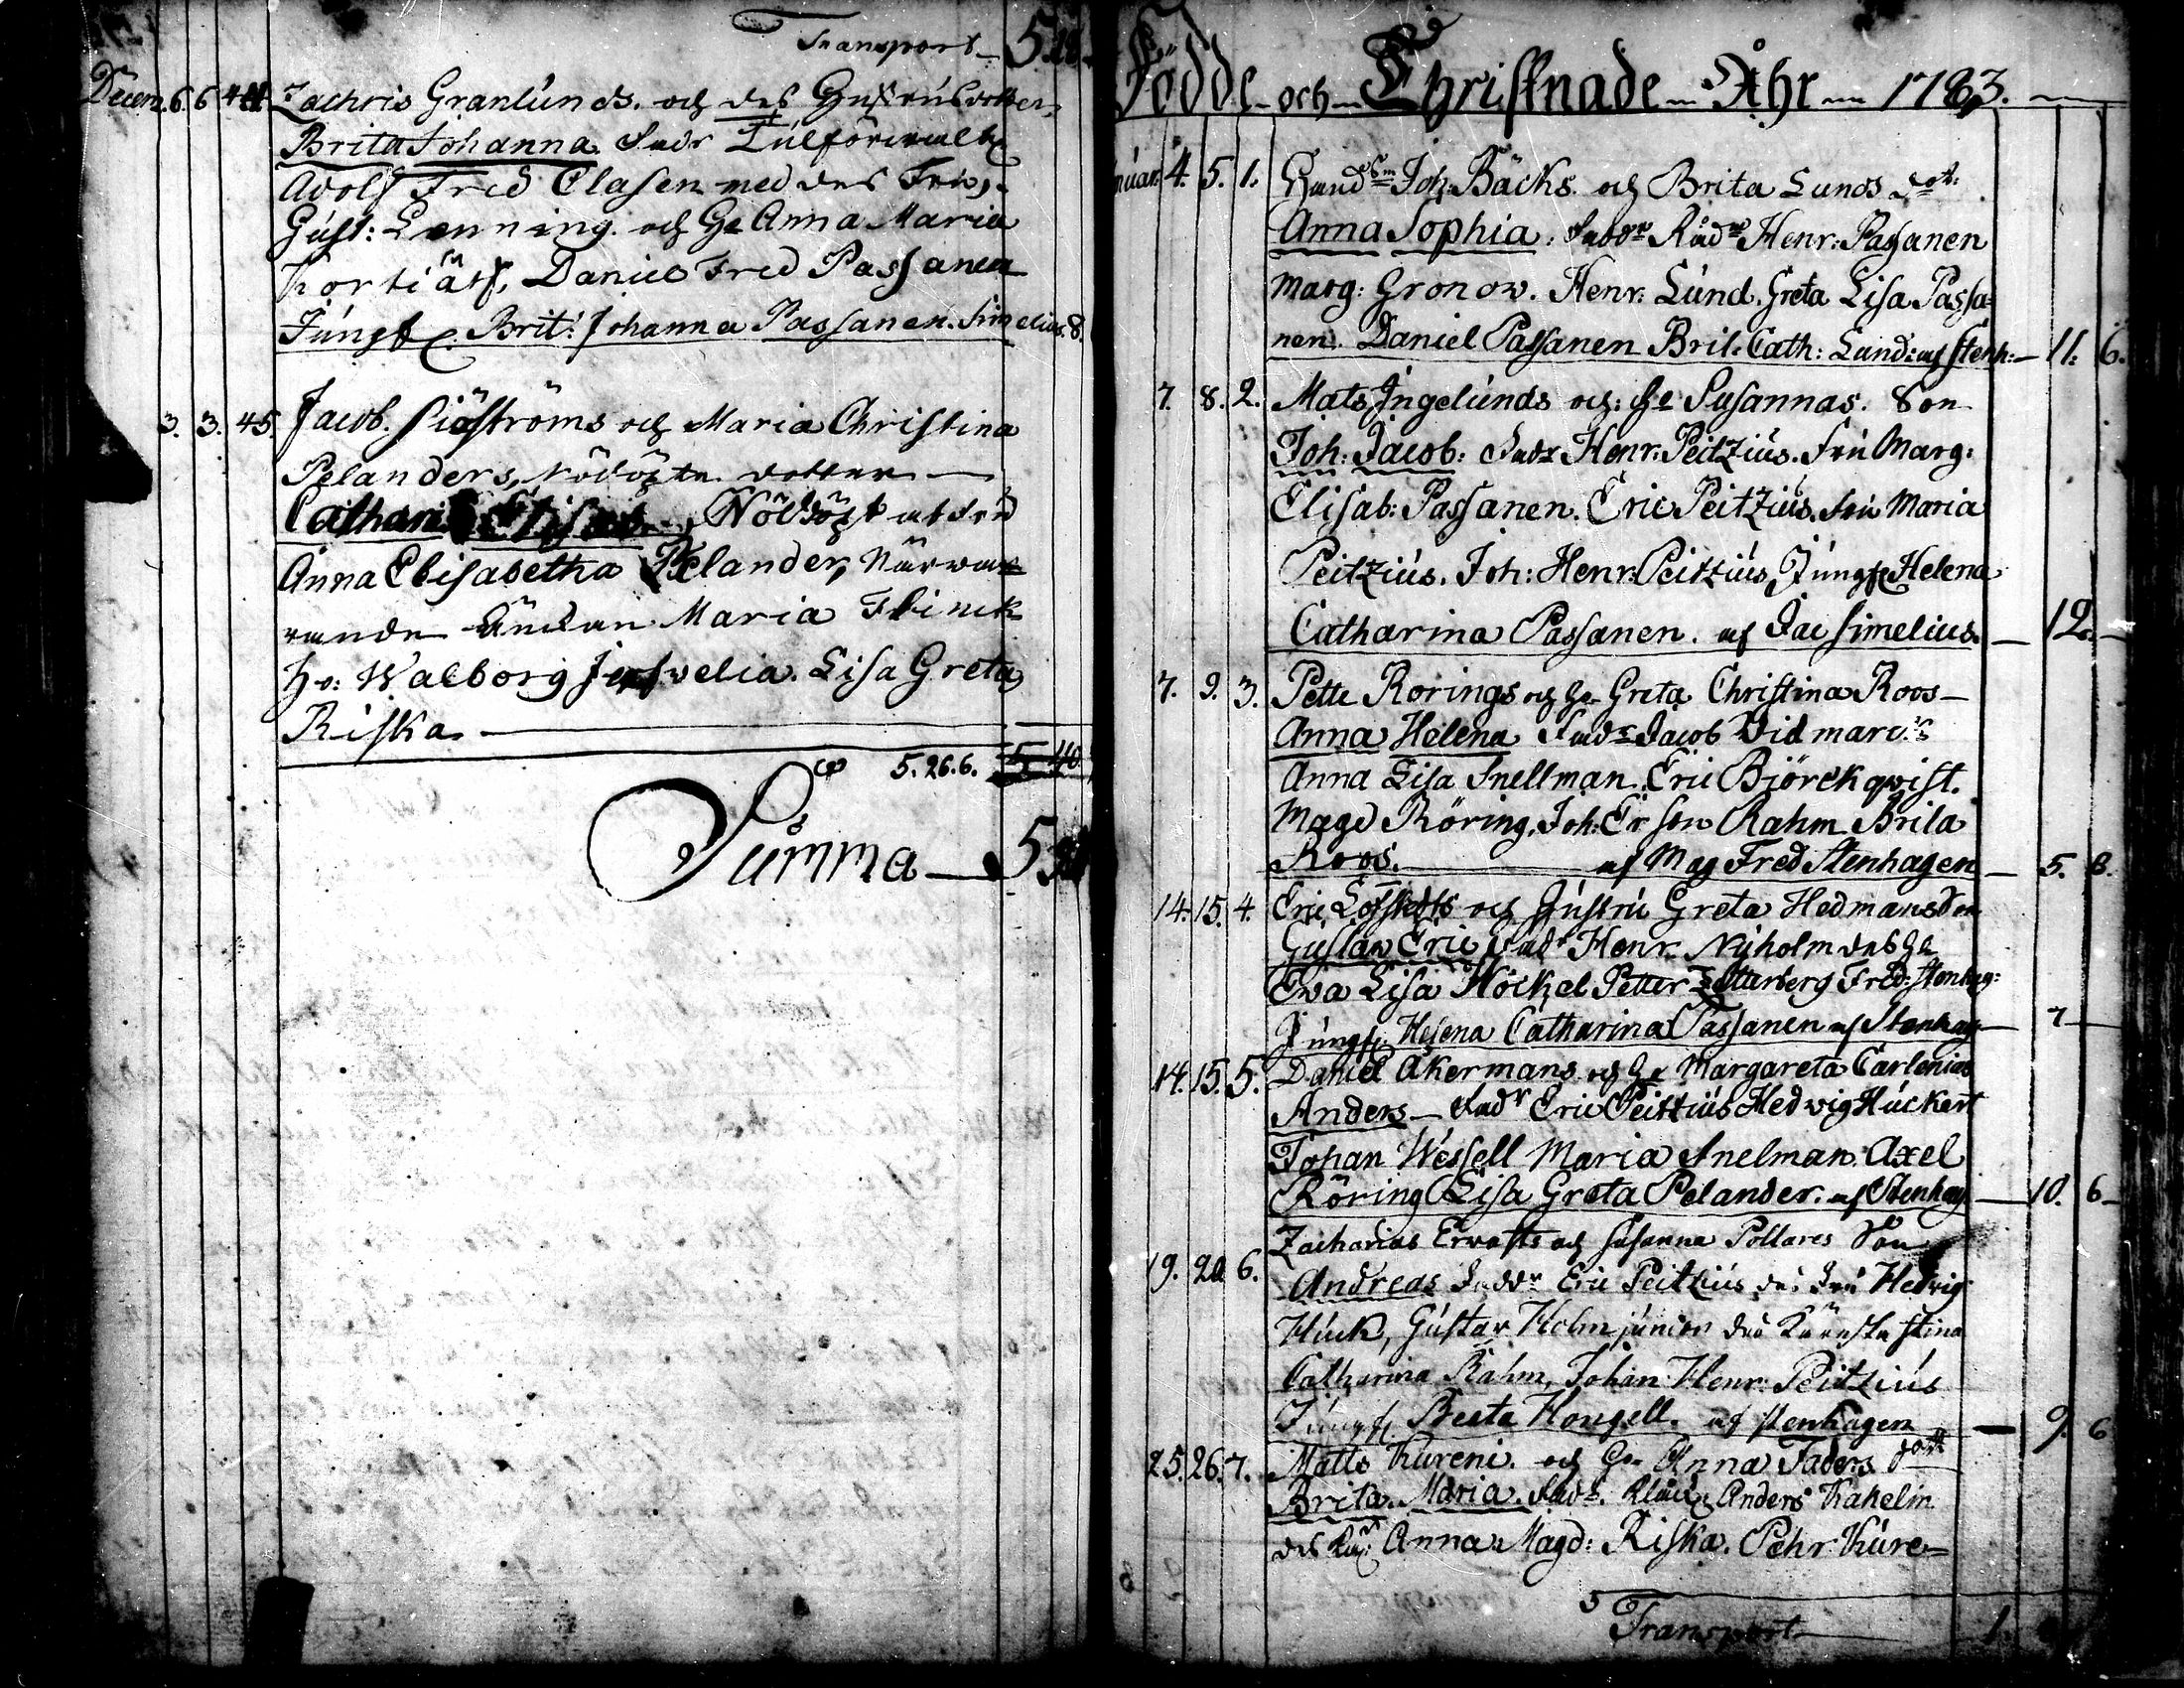 Transport 5.18
Decem. 6. 6 44. Zachris Granlunds. och des Hustrus dotter
Brita Johanna. Fadr Tulförvalt
Adolf Fred Clasen med des Fru,
Gust: Lenning. och He Anna Maria
Portiätz, Daniel Fred Passanen
Jungf. Brit: Johanna Passanen. Simelius. 8.
3. 3. 45. Jacob. Siöströms och Maria Christina
Pelanders, Nöddöpte dotter
Catharin Elisab. Nöddöpt af Fru
Anna Elisabetha Pelander, Närwa-
rande Änkan Maria Flinck
H: Walborg Lisa Greta
Riska
5. 26. 6.
Summa 5
Födde och Christnade Åhr 1783.
nuar. 4. 5. 1. Hand Joh: Bäcks. och Brita Lunds dot:
Anna Sophia. Faddr Rådm Henr: Passanen
Marg: Gronow. Henr: Lund. Greta Lisa Passa=
nen. Daniel Passanen Brit. Cath: Lund: af Stenh: 11. 6.
7. 8. 2. Mats Ingelunds och He Susannas. Son
Joh: Jacob: Fadr Henr: Peitzius. Fru Marg:
Elisab: Passanen. Eric Peitzius. Fru Maria
Peitzius. Joh: Henr: Peitzius, Jungf Helena
Catharina Passanen. af Jac Simelius. 12.
7. 9. 3. Pette Rorings och He Greta Christina Roos
Anna Helena Fadr Jacob Vidmarc
Anna Lisa Snellman. Eric Biörckqvist.
Magd Röring. Joh: Erson Rahm Brita
Roos. af Mag Fred Stenhagen 5. 8.
14. 15. 4. Eric Löfstedts och Hustru Greta Hedmans Son
Gustaw Eric Fadr Henr. Nyholm des He
Ewa Lisa Höckel Petter Zetterberg Fred: Stenhag:
Jungf. Helena Catharina Passanen af Stenhag 7
14. 15. 5. Daniel Åkermans och He Margareta Carlenias
Anders Fadr Eric Peitzius Hedvig Huckert
Johan Wessell Maria Snelman. Axel
Röring Lisa Greta Pelander. af Stenhag 10. 6
Zacharias Erwasts och Susanna Pollares Son
19. 20 6. Andreas Faddr Eric Peitzius des Fru Hedvig
Huck, Gustav Holm junior des Käresta Stina
Catharina Rahm, Johan Henr: Peitzius
Jungf. Beata Hongell. af Stenhagen 9. 6
25. 26. 7. Matts Kureni. och He Anna Faders dott
Brita Maria. Fadr. Anders Kahelin
des Anna Magd: Riska. Pehr Kure
Transport 1.